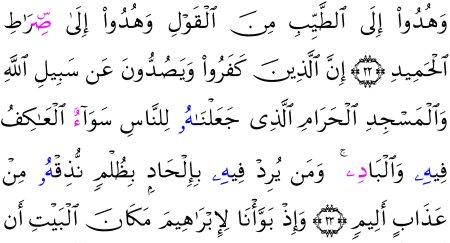 وَهُدُوٓا۟ إِلَى ٱلطَّيِّبِ مِنَ ٱلْقَوْلِ وَهُدُوٓا۟ إِلَىٰ صِۜرَٰطِ
ٱلْحَمِيدِ ۝٢٢ إِنَّ ٱلَّذِينَ كَفَرُوا۟ وَيَصُدُّونَ عَن سَبِيلِ ٱللَّهِ
وَٱلْمَسْجِدِ ٱلْحَرَامِ ٱلَّذِى جَعَلْنَٰهُۥ لِلنَّاسِ سَوَآءٌ ٱلْعَٰكِفُ
فِيهِۦ وَٱلْبَادِۦ ۚ وَمَن يُرِدْ فِيهِۦ بِإِلْحَادٍۭ بِظُلْمٍ نُّذِقْهُۥ مِنْ
عَذَابٍ أَلِيمٍ ۝٢٣ وَإِذْ بَوَّأْنَا لِإِبْرَٰهِيمَ مَكَانَ ٱلْبَيْتِ أَن